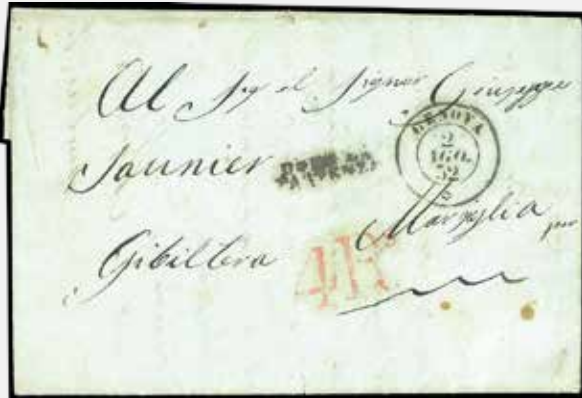 Al Sig.r el Signor Giuseppe
Saunier
GENOVA
2
AGO.
52
Marsiglia per
Gibilterra
4R